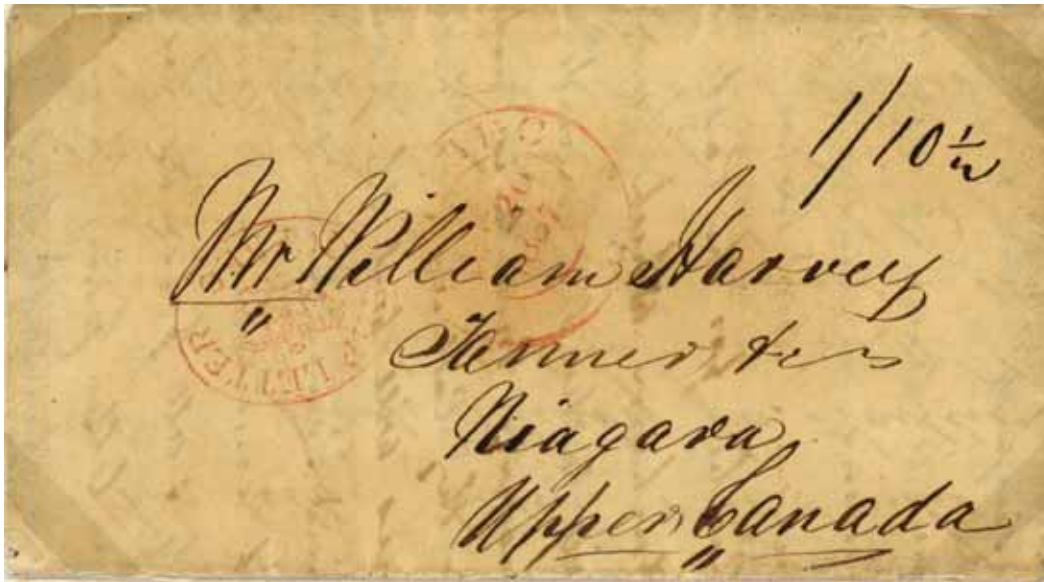 1/10 1/2
Mr William Harvey
Tanner &c
Niagara
Upper Canada
LETTER
20